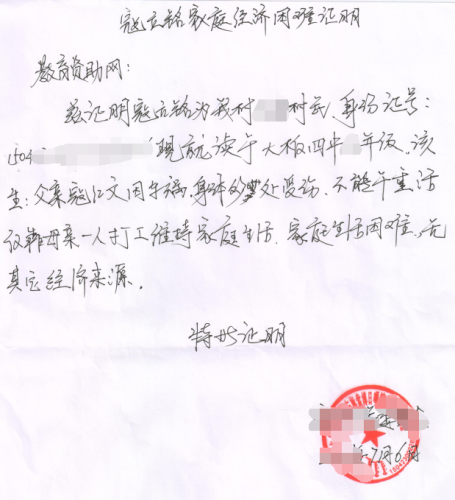 寇立铭家庭经济困难证明
教育资助网：
兹证明寇立铭为我村 村民，身份证号：
1504 现就读于大板四中 年级。该
生：父亲寇仁文因车祸，身体多处受伤，不能干重活
仅靠母亲一人打工维持家庭生活，家庭生活困难，无
其它经济来源。
特此证明
7月6日